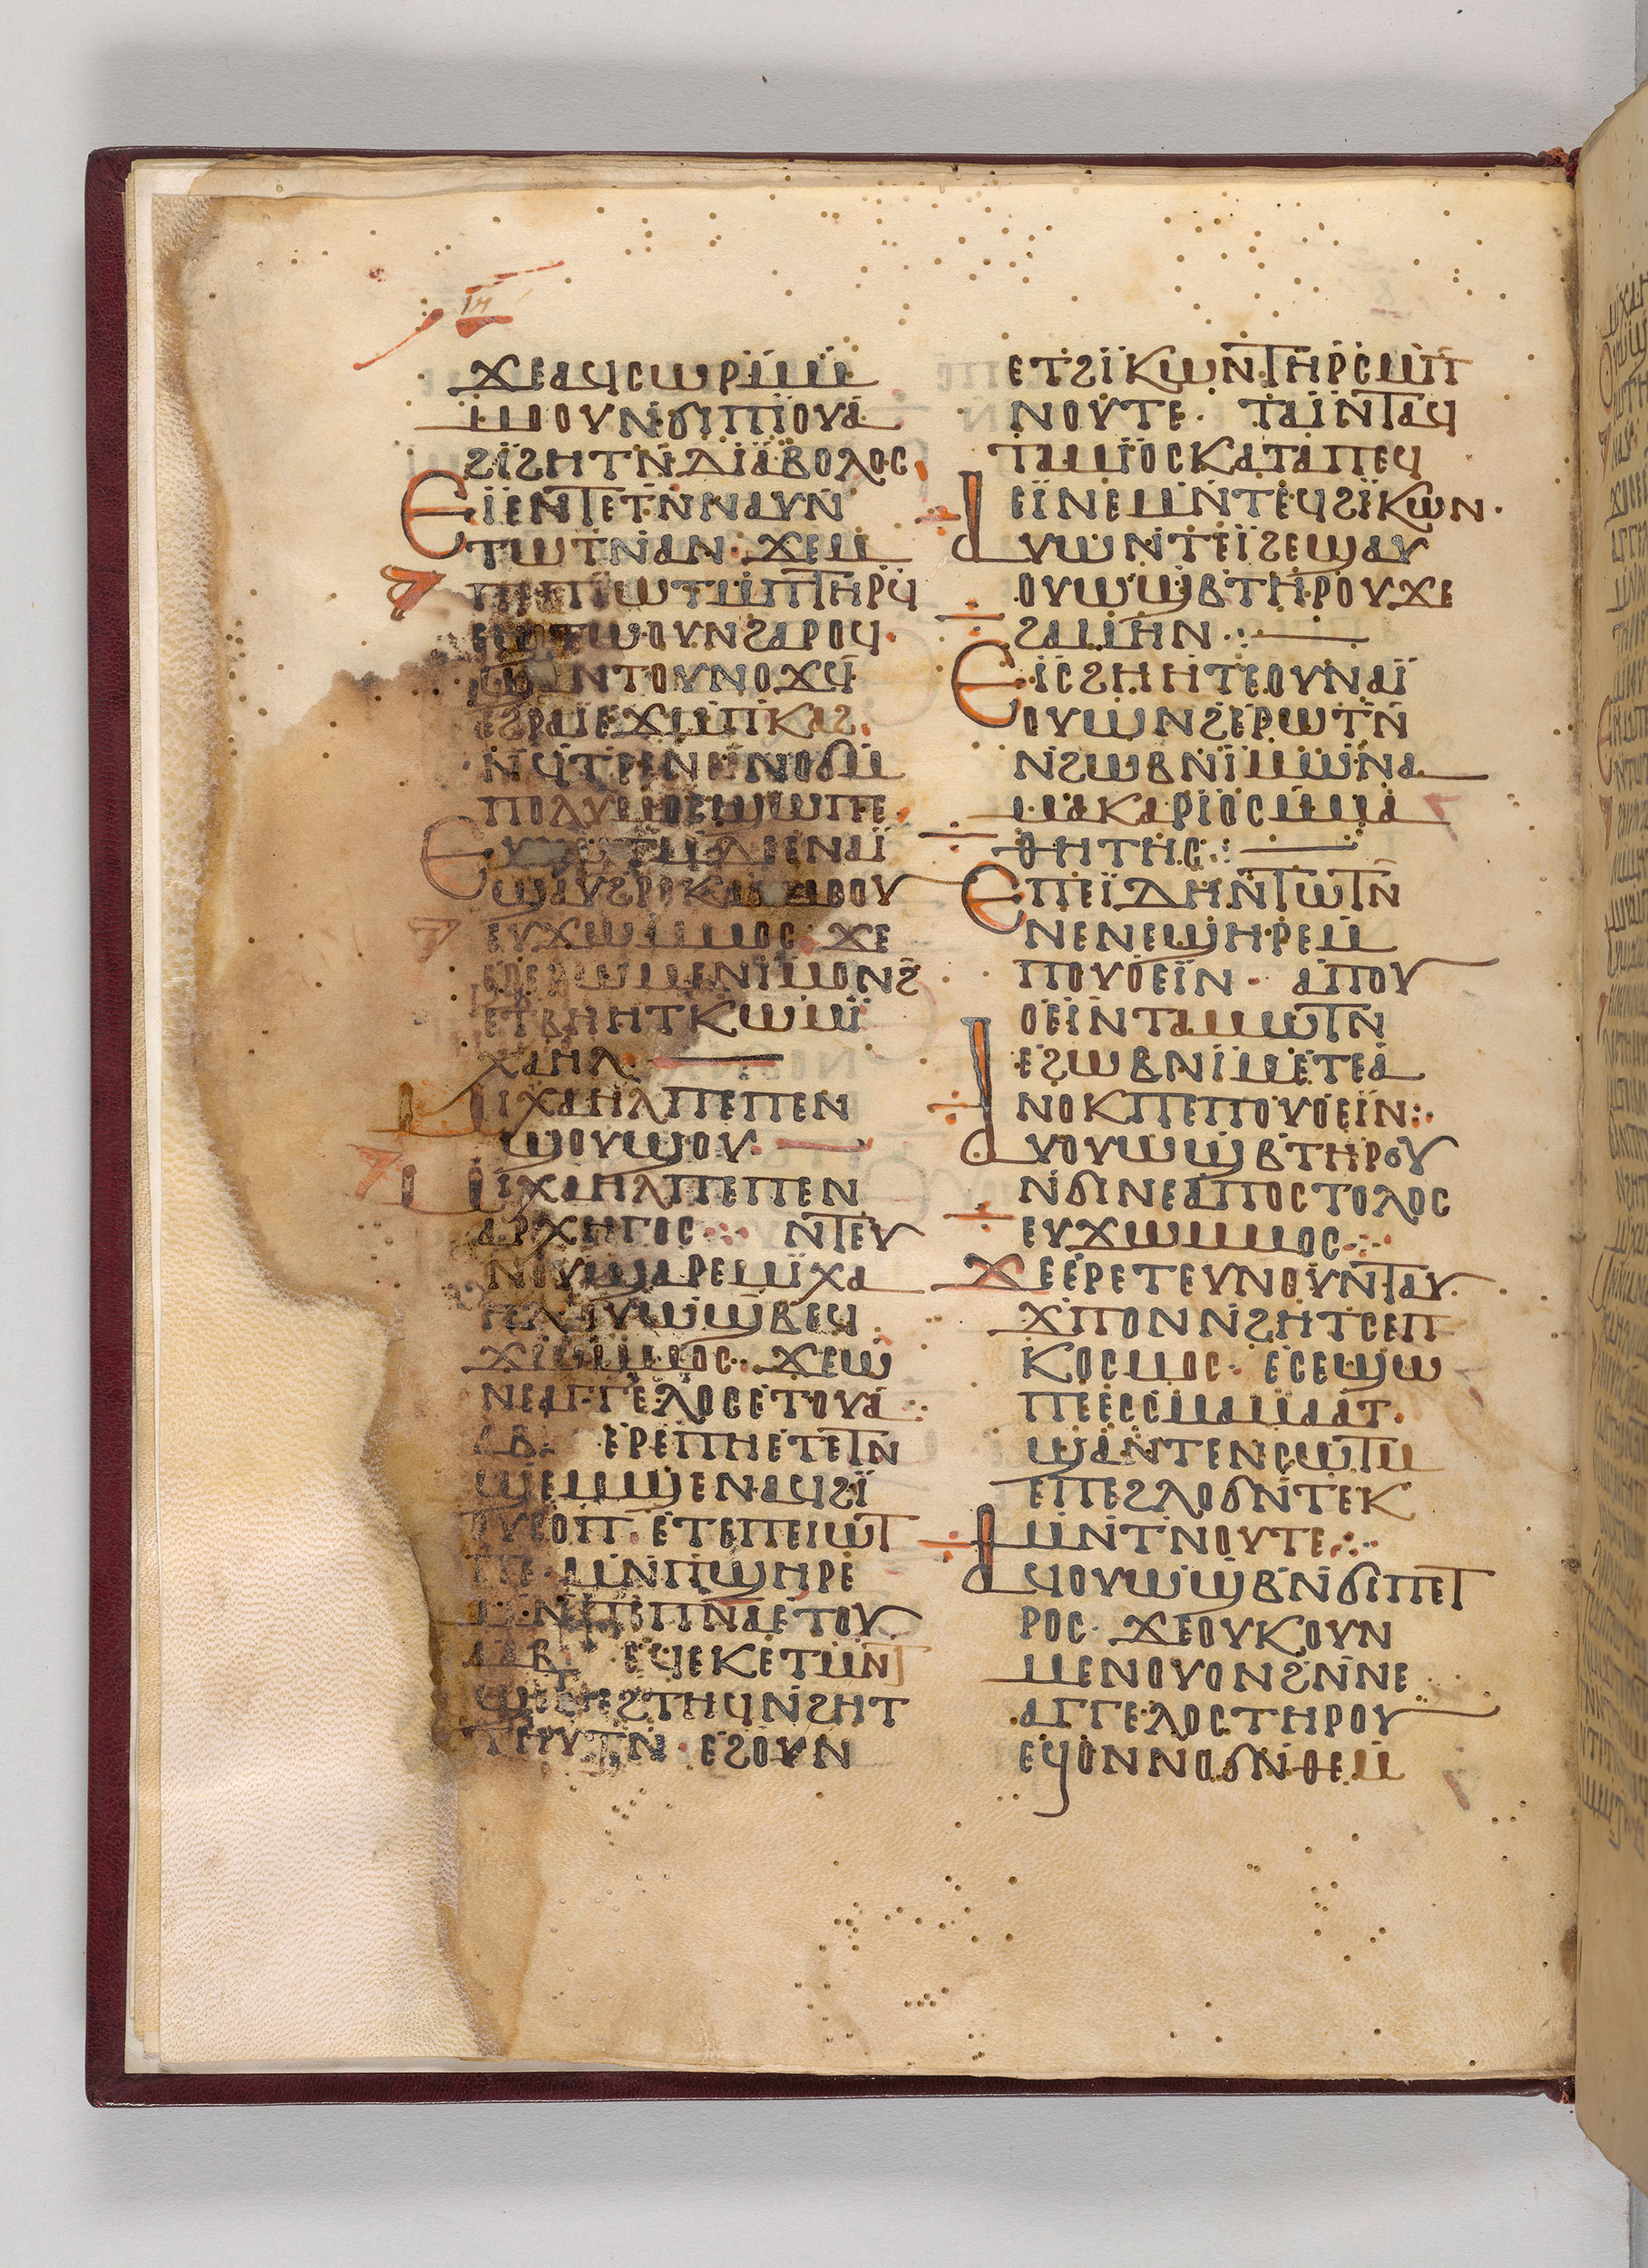 ⲓⲏ
ϫⲉⲁϥⲥⲱⲣⲙⲙ
ⲙⲟⲟⲩⲛϭⲓⲡⲓⲟⲩⲁ
ϩⲓϩⲏⲧⲛⲇⲓⲁⲃⲟⲗⲟⲥ
Ⲉⲓⲉⲛⲧⲉⲧⲛⲛⲁⲩⲛ
ⲧⲱⲧⲛⲁⲛ· ϫⲉⲙ
ⲡⲉⲡⲓⲱⲧⲙⲡⲧⲏⲣϥ
ⲧⲱⲟⲩⲛϩⲁⲣⲟϥ·
ϣⲁⲛⲧⲟⲩⲛⲟϫϥ
ⲉϩⲣⲁⲓⲉϫⲙⲡⲕⲁϩ·
ⲛϥⲧⲣⲉⲛⲉⲓⲛⲟϭⲙ
ⲡⲟⲗⲩⲙⲟⲥϣⲱⲡⲉ·
ⲛⲁⲓ
ϣⲁⲩϩⲣⲟⲕ
ⲉⲩϫⲱⲙⲙⲟⲥ ϫⲉ
ⲉⲧⲃⲏⲏⲧⲕⲱⲙⲓ
ⲭⲁⲏⲗ·
Ⲙⲓⲭⲁⲏⲗⲡⲉⲡⲉⲛ
ϣⲟⲩϣⲟⲩ·
Ⲙⲓⲭⲁⲏⲗⲡⲉⲡⲉⲛ
ⲁⲣⲭⲏⲅⲟⲥ· ⲛⲧⲉⲩ
ⲛⲟⲩϣⲁⲣⲉⲙⲓⲭⲁ
ⲏⲗ ⲟⲩⲱϣⲃⲉϥ
ϫⲱⲙⲙⲟⲥ· ϫⲉⲱ
ⲛⲉⲁⲅⲅⲉⲗⲟⲥⲉⲧⲟⲩⲁ
ⲁⲃ· ⲉⲣⲉⲡⲏⲉⲧⲉⲧⲛ
ϣⲉⲙϣⲉⲛⲁϥϩⲓ
ⲟⲩⲥⲟⲡ· ⲉⲧⲉⲡⲉⲓⲱⲧ
ⲡⲉ· ⲙⲛⲡϣⲏⲣⲉ
ⲙⲛⲡⲉⲡⲛⲁⲉⲧⲟⲩ
ⲁⲁⲃ· ⲉϥⲉⲕⲉⲧⲙⲛⲧ
ϣⲛϩⲧⲏϥⲛϩⲏⲧ
ⲧⲏⲩⲧⲛ· ⲉϩⲟⲩⲛ
ⲉⲧϩⲓⲕⲱⲛⲧⲏⲣⲥⲙⲡ
ⲛⲟⲩⲧⲉ· ⲧⲁⲓⲛⲧⲁϥ
ⲧⲁⲙⲓⲟⲥⲕⲁⲧⲁⲡⲉϥ
ⲉⲓⲛⲉⲙⲛⲧⲉϥϩⲓⲕⲱⲛ·
Ⲁⲩⲱⲛⲧⲉⲓϩⲉϣⲁⲩ
ⲟⲩⲱϣⲃⲧⲏⲣⲟⲩϫⲉ
ϩⲁⲙⲏⲛ·:
Ⲉⲓⲥϩⲏⲏⲧⲉⲟⲩⲛⲁⲓ
ⲟⲩⲱⲛϩⲉⲣⲱⲧⲛ
ⲛϩⲱⲃⲛⲓⲙⲱⲛⲁ
ⲙⲁⲕⲁⲣⲓⲟⲥⲙⲙⲁ
ⲑⲏⲧⲏⲥ·:
Ⲉⲡⲉⲓⲇⲏⲛⲧⲱⲧⲛ
ⲛⲉⲛⲉϣⲏⲣⲉⲙ
ⲡⲟⲩⲟⲉⲓⲛ· ⲁⲡⲟⲩ
ⲟⲉⲓⲛⲧⲁⲙⲱⲧⲛ
ⲉϩⲱⲃⲛⲓⲙⲉⲧⲉⲁ
ⲛⲟⲕⲡⲉⲡⲟⲩⲟⲉⲓⲛ:·
Ⲁⲩⲟⲩⲱϣⲃⲧⲏⲣⲟⲩ
ⲛϭⲓⲛⲉⲁⲡⲟⲥⲧⲟⲗⲟⲥ
ⲉⲩϫⲱⲙⲙⲟⲥ·:·
Ϫⲉⲉⲣⲉⲧⲉⲩⲛⲟⲩⲛⲧⲁⲩ
ϫⲡⲟⲛⲛϩⲏⲧⲥⲉⲡ
ⲕⲟⲥⲙⲟⲥ· ⲉⲥⲉϣⲱ
ⲡⲉⲉⲥⲥⲙⲁⲙⲁⲁⲧ·
ϣⲁⲛⲧⲉⲛⲥⲱⲧⲙ
ⲉⲡⲉϩⲗⲟϭⲛⲧⲉⲕ
ⲙⲛⲧⲛⲟⲩⲧⲉ·:·
Ⲁϥⲟⲩⲱϣⲃⲛϭⲓⲡⲉⲧ
ⲣⲟⲥ· ϫⲉⲟⲩⲕⲟⲩⲛ
ⲙⲉⲛⲟⲩⲟⲛϩⲛⲛⲉ
ⲁⲅⲅⲉⲗⲟⲥⲧⲏⲣⲟⲩ
ⲉϥⲟⲛⲛⲟϭⲛⲑⲉⲙ